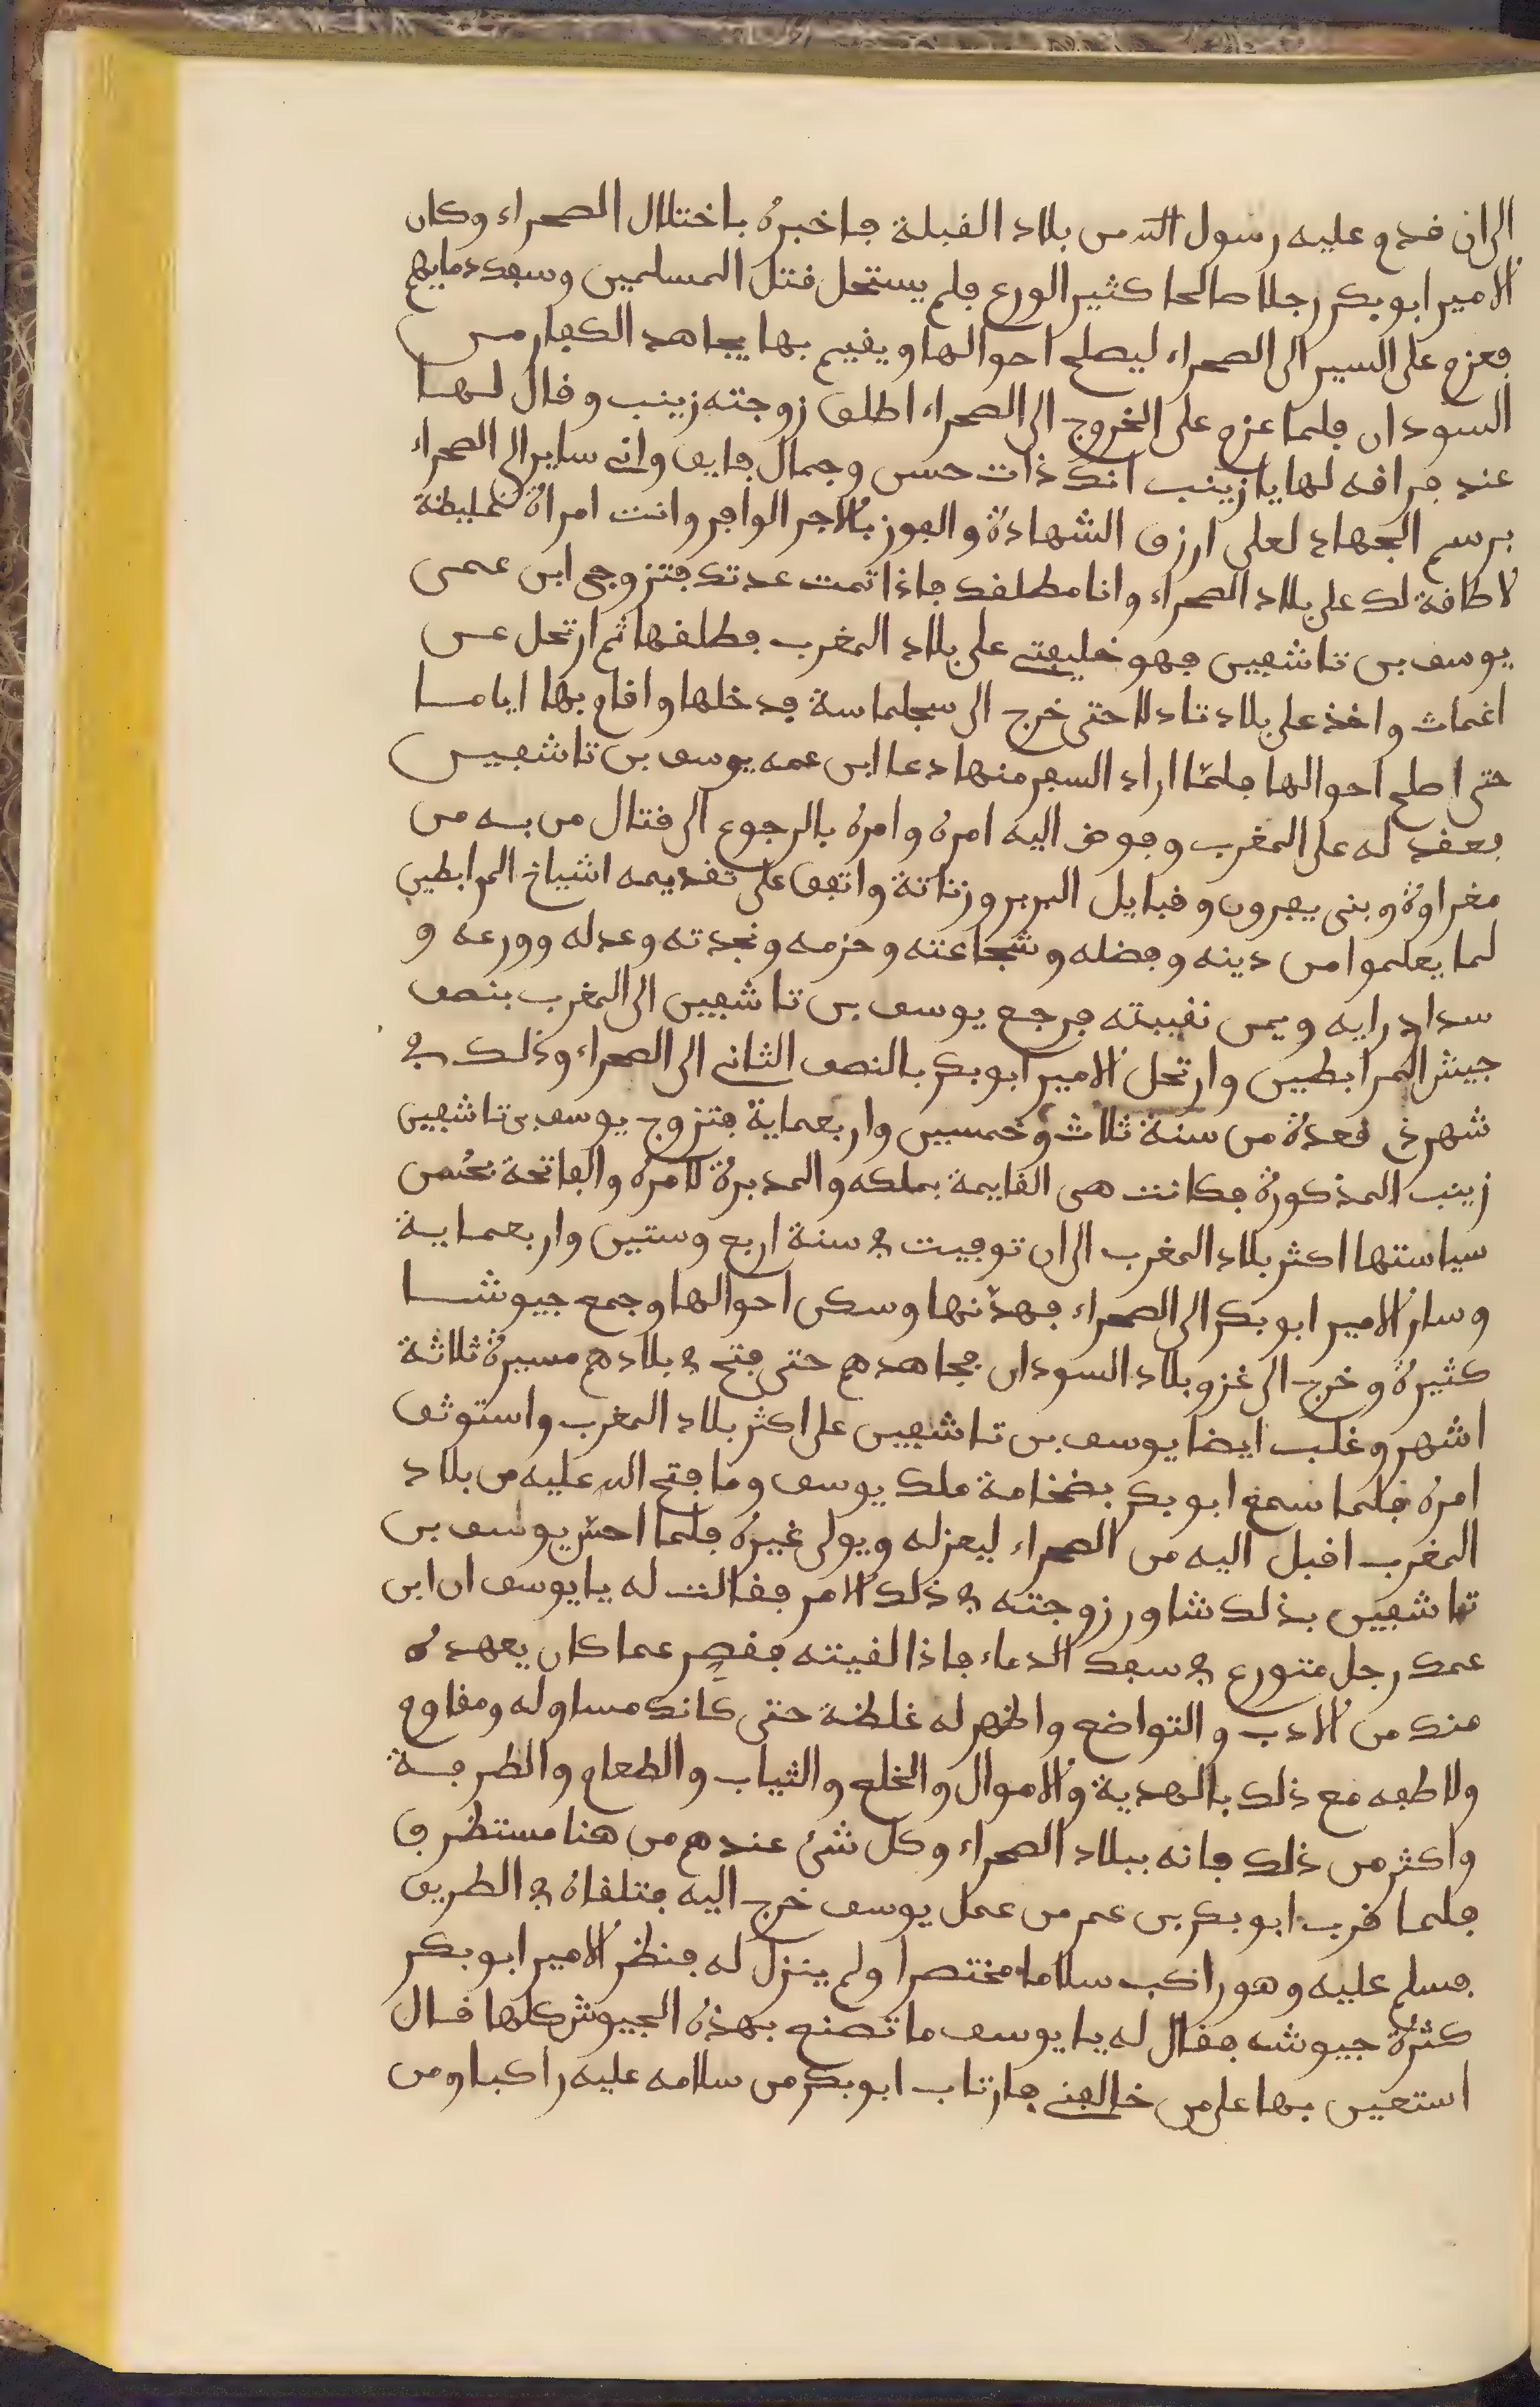 الى ان قدم عليه رسول الله من بلاد القبلة فاخبره باختلال الصحراء وكان
الامير ابو بكر رجلا صالحا كثير الورع فلم يستحل قتل المسلمين وسفك دمايهم
فعزم على السير الى الصحراء ليصلح احوالها ويقيم بها يجاهد الكفار من
السودان فلما عزم على الخروج الى الصحراء اطلق زوجته زينب وقال لها
عند فراقه لها يا زينب انك ذات حسن وجمال فايق واني ساير الى الصحراء
برسم الجهاد لعلى ارزق الشهادة والفوز بالاجر الوافر وانت امراة غليظة
لا طاقة لك على بلاد الصحراء وانا مطلقك فاذا تمت عدتك فتزوجي ابن عمى
يوسف بن تاشفين فهو خليفتي على بلاد المغرب فطلقها ثم ارتحل عن
اغمات واخذ على بلاد تادلا حتى خرج الى سجلماسة فدخلها واقام بها اياما
حتى اصلح احوالها فلمّا اراد السفر منها دعا ابن عمه يوسف بن تاشفين
فعقد له على المغرب وفوض اليه امره وامره بالرجوع الى قتال من به من
مغراوة وبنى يفرون وقبايل البربر وزناتة واتفق على تقديمه اشياخ المرابطين
لما يعلموا من دينه وفضله وشجاعته وحزمه ونجدته وعدله وورعه و
سداد رايه ويمن نقيبته فرجع يوسف بن تاشفين الى المغرب بنصف
جيش المرابطين وارتحل الامير ابو بكر بالنصف الثاني الى الصحراء وذلك في
شهر ذى قعدة من سنة ثلاث وخمسين واربعماية فتزوج يوسف بن تاشفين
زينب المذكورة فكانت هى القايمة بملكه والمدبرة لامره والفاتحة بحُسن
سياستها اكثر بلاد المغرب الى ان توفيت في سنة اربع وستين واربعماية
وسار الامير ابو بكر الى الصحراء فهدّنها وسكن احوالها وجمع جيوشا
كثيرة وخرج الى غزو بلاد السودان فجاهدهم حتى فتح في بلادهم مسيرة ثلاثة
اشهر وغلب ايضا يوسف بن تاشفين على اكثر بلاد المغرب واستوثق
امره فلما سمع ابو بكر بضخامة ملك يوسف وما فتح الله عليه من بلاد
المغرب اقبل اليه من الصحراء ليعزله ويولى غيره فلما احسّ يوسف بن
تاشفين بذلك شاور زوجته في ذلك الامر فقالت له يا يوسف ان ابن
عمك رجل متورع في سفك الدماء فاذا لقيته فقصِّر عما كان يعهده
منك من الادب والتواضع واظهر له غلظة حتى كانك مساو له ومقاوم
ولاطفه مع ذلك بالهدية والاموال والخلع والثياب والطعام والطرفة
واكثر من ذلك فانه ببلاد الصحراء وكل شئ عندهم من هنا مستظرف
فلما قرب ابو بكر بن عمر من عمل يوسف خرج اليه فتلقاه في الطريق
فسلم عليه وهو راكب سلاما مختصرا ولم ينزل له فنظر الامير ابو بكر
كثرة جيوشه فقال له يا يوسف ما تصنع بهذه الجيوش كلها قال
استعين بها على من خالفني فارتاب ابو بكر من سلامه عليه راكبا ومن